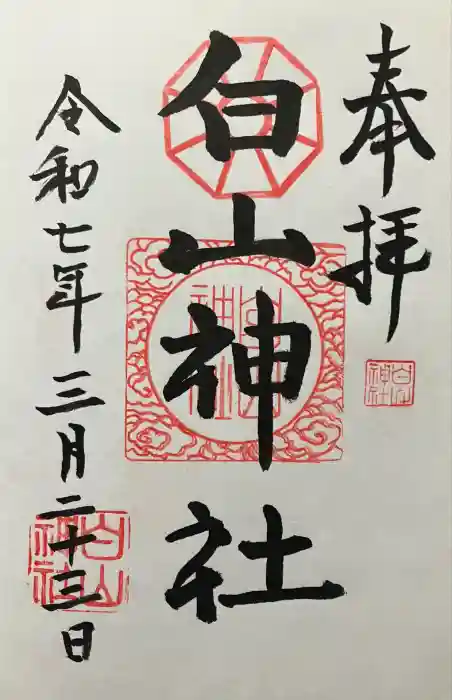 奉拝
白山神社
白山神社
白山神社
令和七年三月二十三日
白山神社